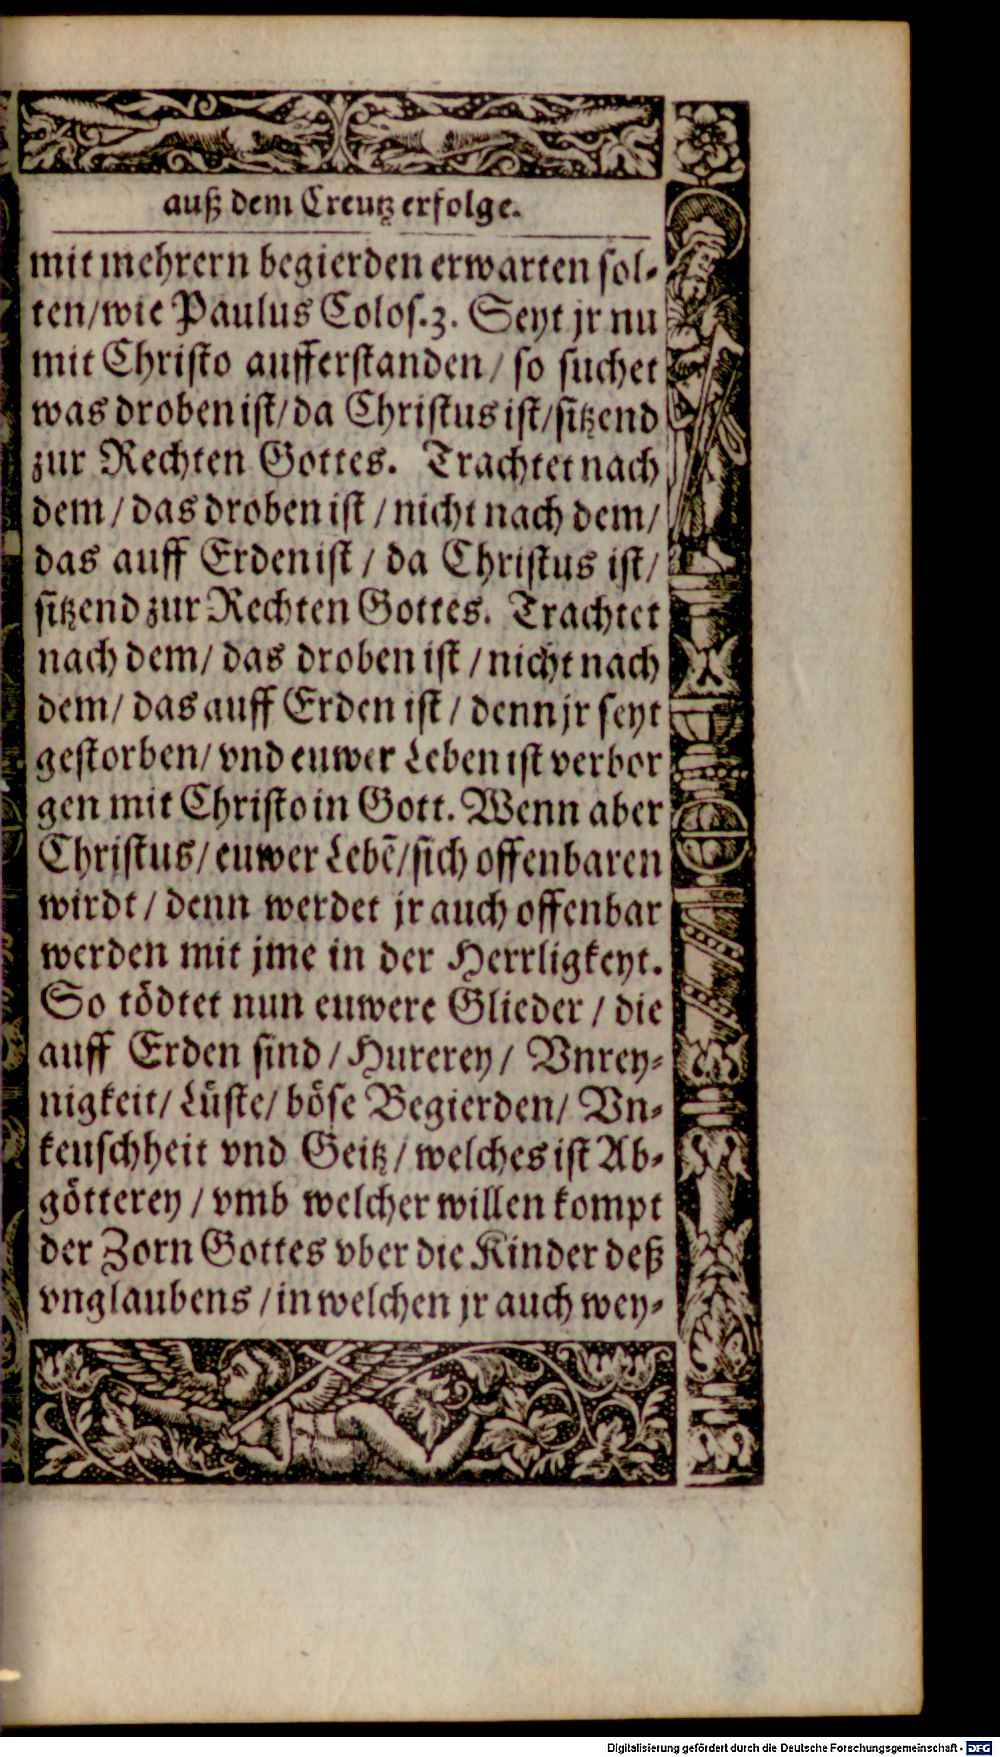 auß dem Creutz erfolge.
mit mehrern begierden erwarten sol-
ten/wie Paulus Colos.3. Seyt jr nu
mit Christo aufferstanden / so suchet
was droben ist/da Christus ist/sitzend
zur Rechten Gottes. Trachtet nach
dem / das droben ist / nicht nach dem/
das auff Erden ist / da Christus ist/
sitzend zur Rechten Gottes. Trachtet
nach dem/ das droben ist / nicht nach
dem/ das auff Erden ist / denn jr seyt
gestorben/ vnd euwer Leben ist verbor
gen mit Christo in Gott. Wenn aber
Christus/ euwer Lebē/sich offenbaren
wirdt / denn werdet jr auch offenbar
werden mit jme in der Herrligkeyt.
So tödtet nun euwere Glieder / die
auff Erden sind / Hurerey / Vnrey-
nigkeit/ Lüste/ böse Begierden/ Vn-
keuschheit vnd Geitz / welches ist Ab-
götterey / vmb welcher willen kompt
der Zorn Gottes vber die Kinder deß
vnglaubens / in welchen jr auch wey-
Digitalisierung gefördert durch die Deutsche Forschungsgemeinschaft - DFG